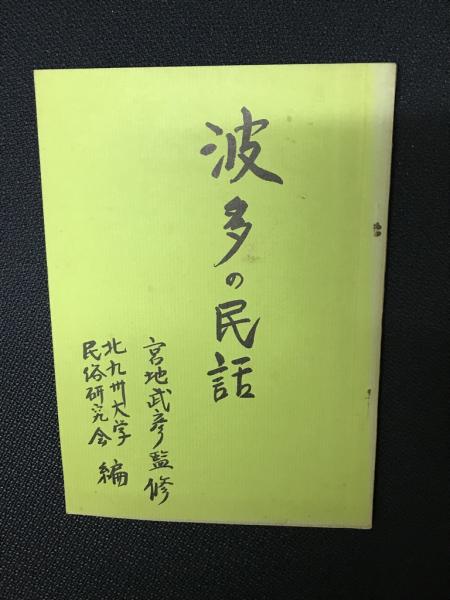 波多の民話
宮地武彦監修
北九州大学
民俗研究会 編